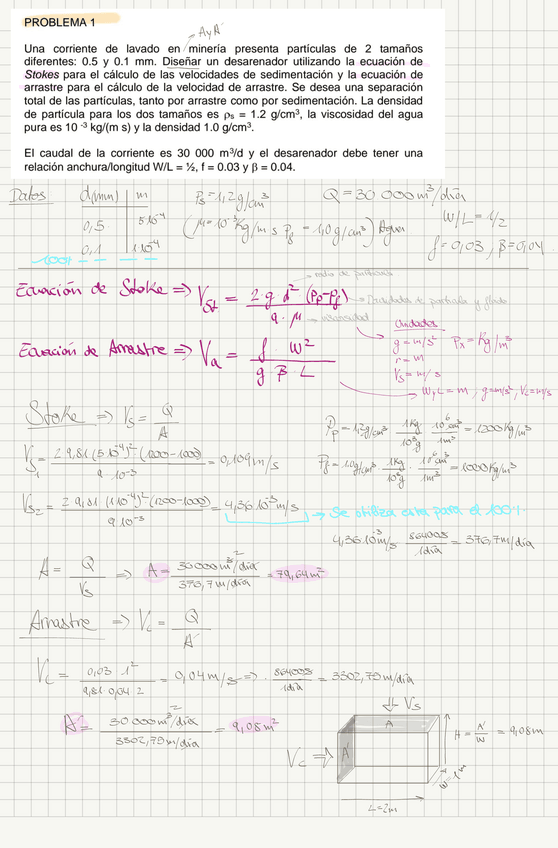 PROBLEMA 1
A y A'
Una corriente de lavado en minería presenta partículas de 2 tamaños
diferentes: 0.5 y 0.1 mm. Diseñar un desarenador utilizando la ecuación de
Stokes para el cálculo de las velocidades de sedimentación y la ecuación de
arrastre para el cálculo de la velocidad de arrastre. Se desea una separación
total de las partículas, tanto por arrastre como por sedimentación. La densidad
de partícula para los dos tamaños es ρs = 1.2 g/cm³, la viscosidad del agua
pura es 10 -³ kg/(m s) y la densidad 1.0 g/cm³.
El caudal de la corriente es 30 000 m³/d y el desarenador debe tener una
relación anchura/longitud W/L = ½, f = 0.03 y β = 0.04.
Datos d(mm) m ρs = 1,2 g/cm³ Q = 30 000 m³/día
0,5 5·10⁻⁴ (μ = 10⁻³ Kg/m s ρf = 1,0 g/cm³) Agua W/L = 1/2
0,1 1·10⁻⁴ f = 0,03, β = 0,04
100%
radio de partículas
Ecuación de Stoke => Vst = 2·g·d²(ρp-ρf) / 9·μ
Densidades de partícula y fluido
viscosidad
Unidades
g = m/s² ρx = Kg/m³
r = m
Vs = m/s
Ecuación de Arrastre => Va = f · W² / g β L
W, L = m, g = m/s², Vc = m/s
Stoke => Vs = Q / A
ρp = 1,2 g/cm³ · 1Kg / 10³g · 10⁶cm³ / 1m³ = 1200 Kg/m³
Vs1 = 2·9,81·(5·10⁻⁴)²·(1200-1000) / 9·10⁻³ = 0,109 m/s
ρf = 1,0 g/cm³ · 1Kg / 10³g · 10⁶cm³ / 1m³ = 1000 Kg/m³
Vs2 = 2·9,81·(1·10⁻⁴)²·(1200-1000) / 9·10⁻³ = 4,36·10⁻³ m/s
-> Se utiliza esta para el 100%
4,36·10⁻³ m/s · 86400s / 1día = 376,7 m/día
A = Q / Vs => A = 30 000 m³/día / 376,7 m/día = 79,64 m²
Arrastre => Vc = Q / A'
Vc = 0,03 · 1² / 9,81·0,04·2 = 0,04 m/s => · 86400s / 1día = 3302,75 m/día
A' = 30 000 m³/día / 3302,75 m/día = 9,08 m²
Vs
A
A'
Vc =>
H = A' / W = 9,08 m
W = 1m
L = 2m